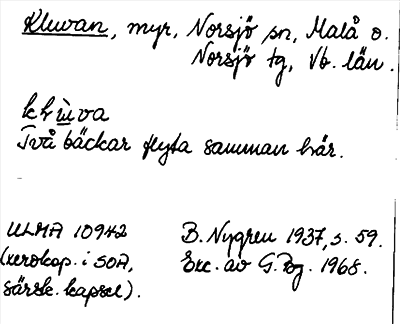 Kluvan, myr, Norsjö sn, Malå o.
Norsjö tg, Vb. län.
klùva
Två bäckar flyta samman här.
ULMA 10942
(xerokop. i SOA,
särsk. kapsel).
B. Nygren 1937, s. 59.
Exc. av G. Bg. 1968.